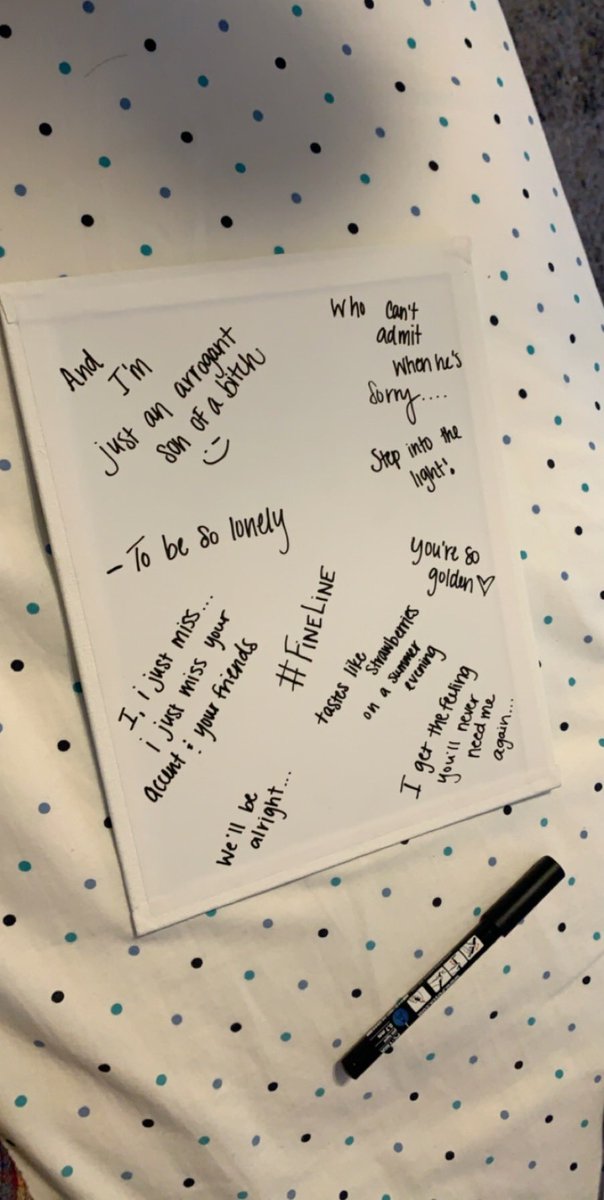 And
I'm
just an arrogant
son of a bitch
:)
Who can't
admit
when he's
sorry....
Step into the
light!
- To be so lonely
you're so
golden ♡
#FINELINE
tastes like
strawberries
on a summer
evening
I, i just miss...
i just miss your
accent & your friends
I get the feeling
you'll never
need me
again...
We'll be
alright...